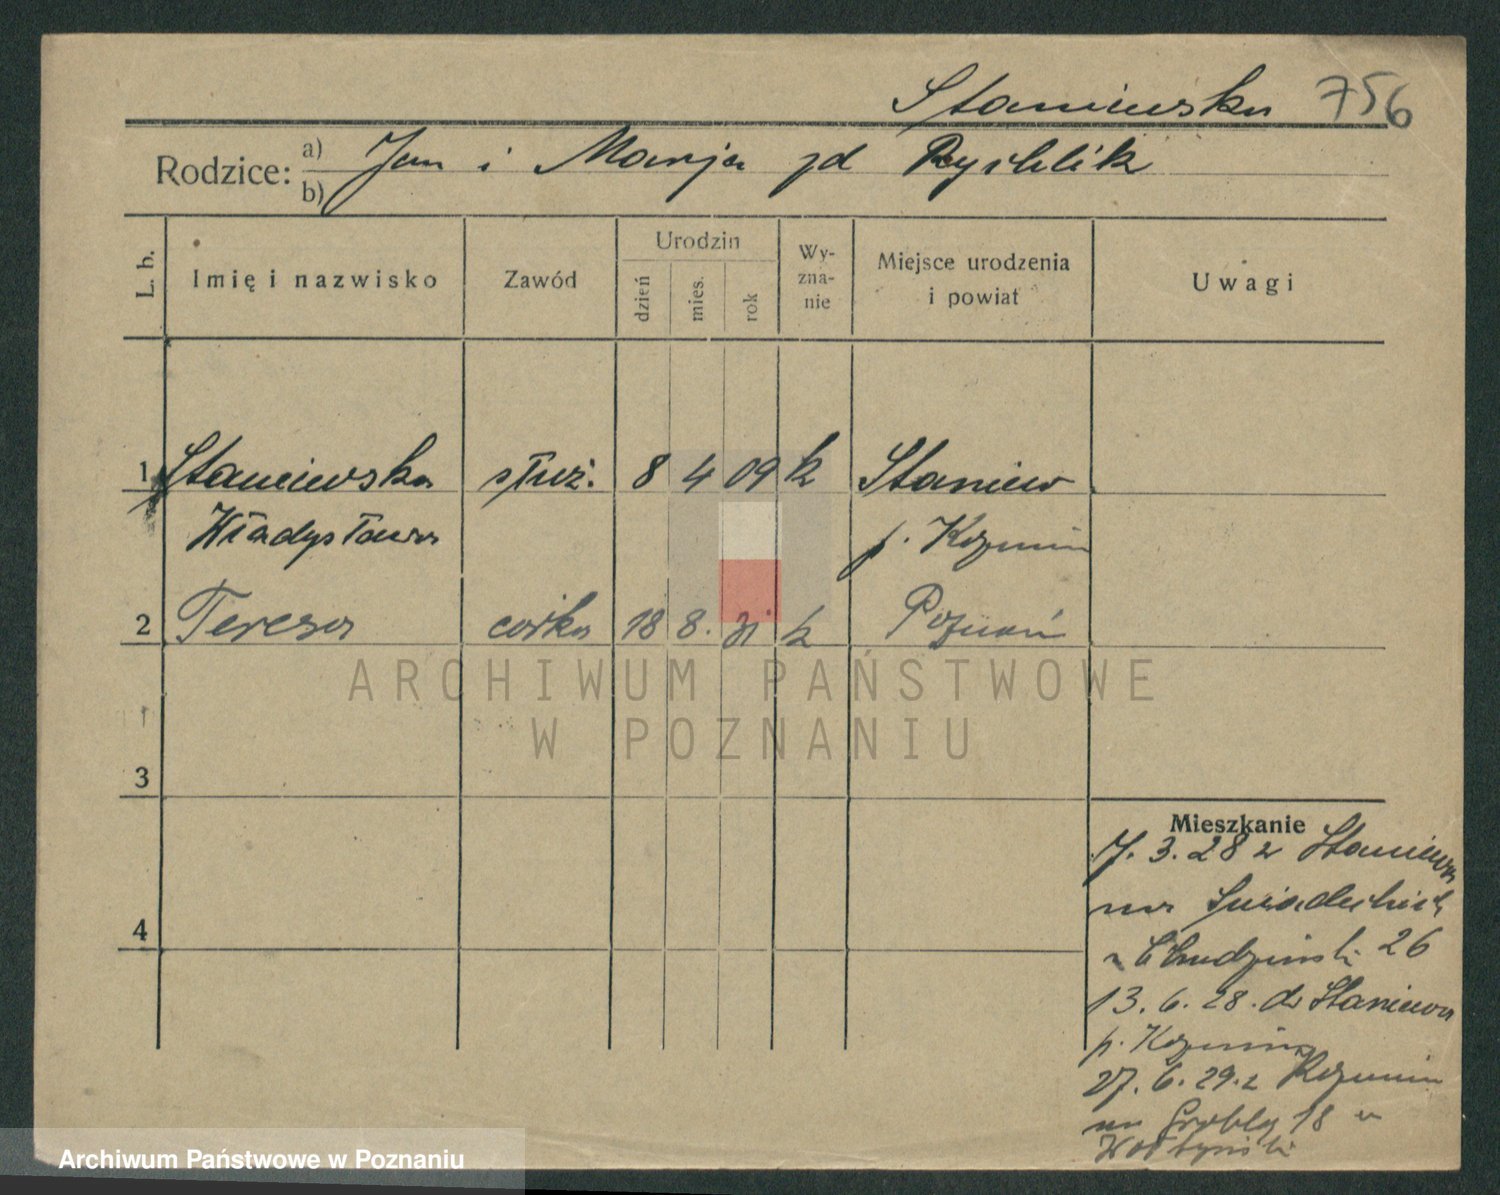 Staniewska 756
Rodzice: a) Jan i Marja zd Rychlik
b)
L. b.
Imię i nazwisko
Zawód
Urodzin
dzień
mies.
rok
Wy-
zna-
nie
Miejsce urodzenia
i powiat
Uwagi
1 Staniewska służ. 8 4 09 k Staniew
Władysława p. Koźmin
2 Teresa córka 18 8. 31 k Poznań
ARCHIWUM PAŃSTWOWE
W POZNANIU
3
4
Mieszkanie
7. 3. 28 z Staniewa
na
26
13. 6. 28. do Staniewa
p. Koźmina
27. 6. 29. z Koźmina
na Grobla 18 u
Archiwum Państwowe w Poznaniu